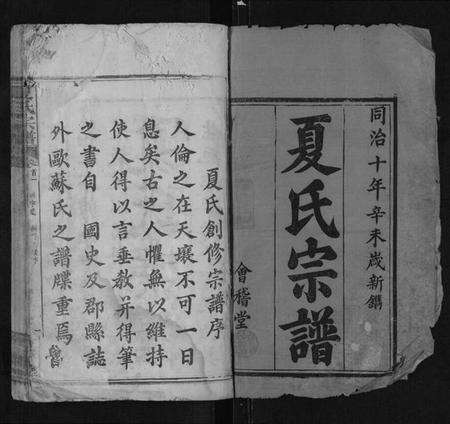 同治十年辛未歲新鐫
夏氏宗譜
會稽堂
夏氏創修宗譜序
人倫之在天壤不可一日
息矣古之人懼無以維持
使人得以言垂教并得筆
之書自 國史及郡縣誌
外歐蘇氏之譜牒重焉會